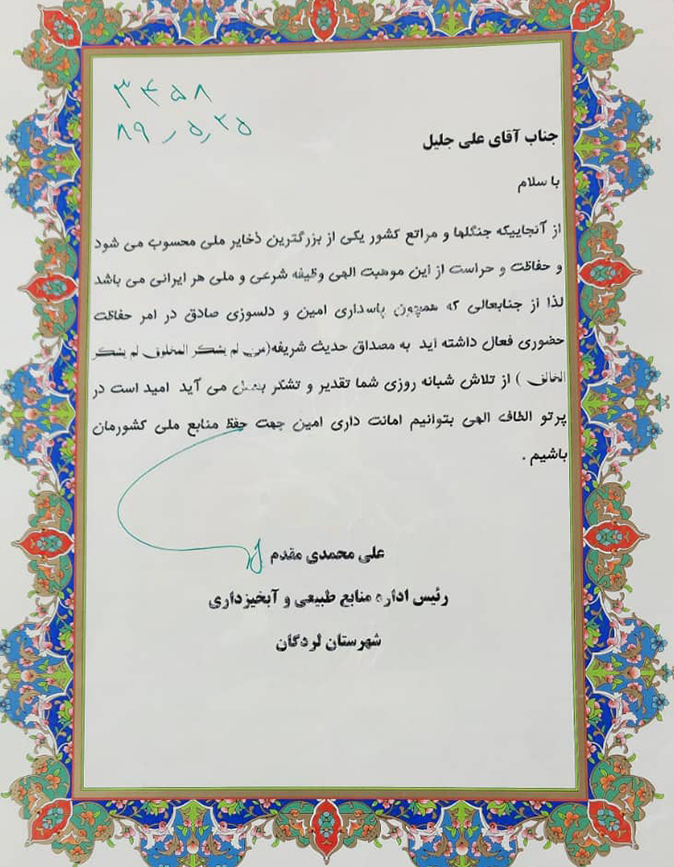 ۳۴۵۸
۸۹٫۵٫۲۵
جناب آقای علی جلیل
با سلام
از آنجاییکه جنگلها و مراتع کشور یکی از بزرگترین ذخایر ملی محسوب می شود
و حفاقت و حراست از این موهبت الهی وظیفه شرعی و ملی هر ایرانی می باشد
لذا از جنابعالی که همچون پاسداری امین و دلسوزی صادق در امر حفاقت
حضوری فعال داشته اید به مصداق حدیث شریفه(من لم یشکر المخلوق لم یشکر
الخالق ) از تلاش شبانه روزی شما تقدیر و تشکر بعمل می آید امید است در
پرتو الطاف الهی بتوانیم امانت داری امین جهت حفظ منابع ملی کشورمان
باشیم .
علی محمدی مقدم
رئیس اداره منابع طبیعی و آبخیزداری
شهرستان لردگان